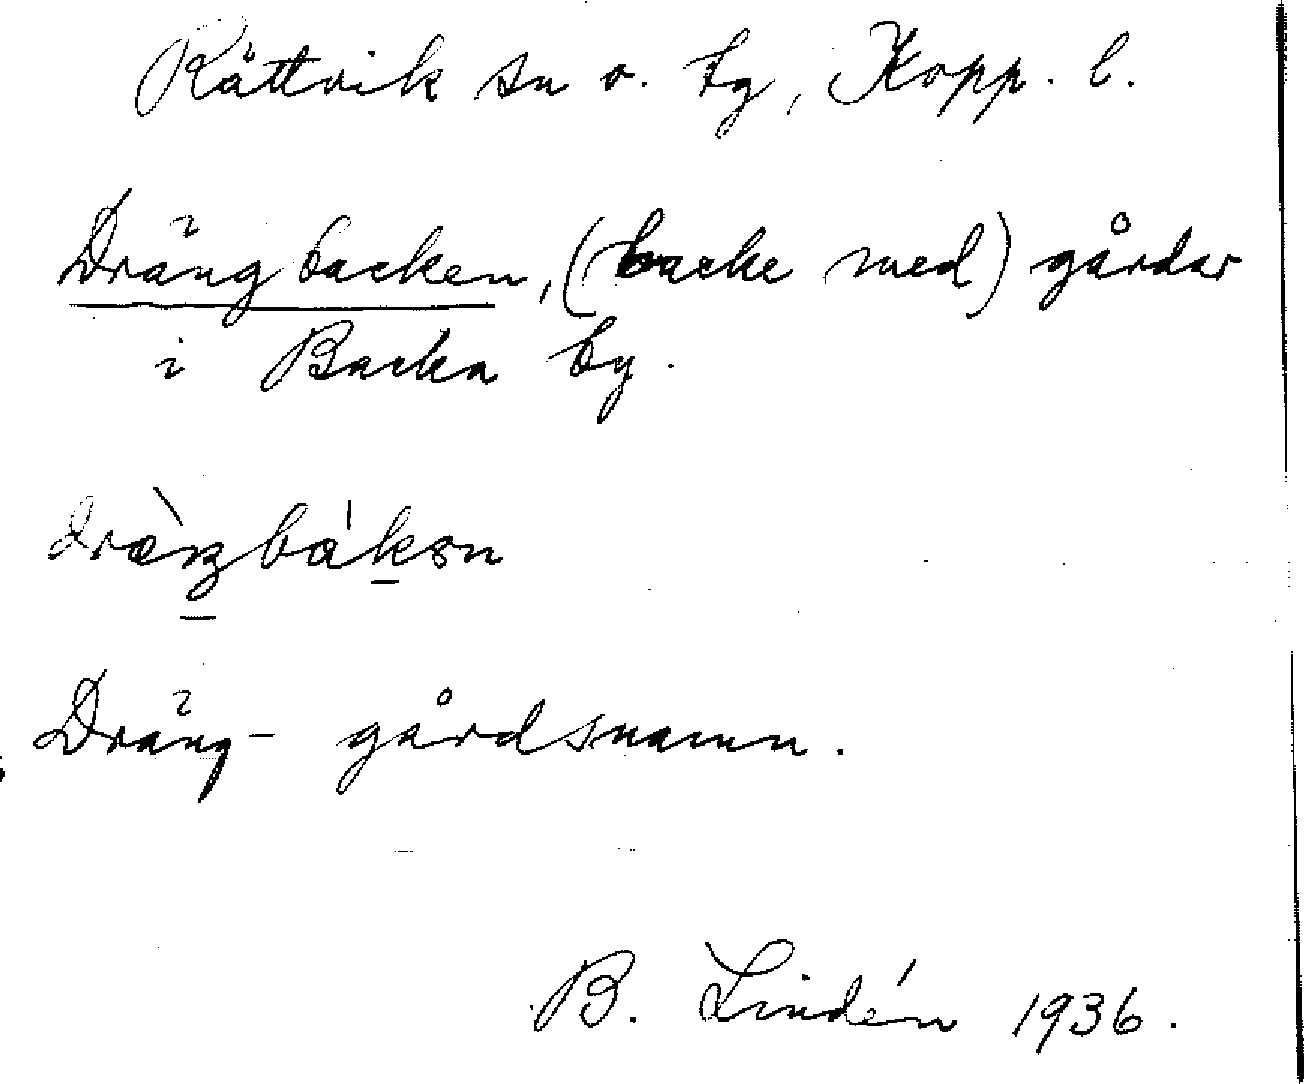 Rättvik sn o. tg, Kopp. l.
Drängbacken, (backe med) gårdar
i Backa by.
Dräng- gårdsnamn.
B. Lindén 1936.